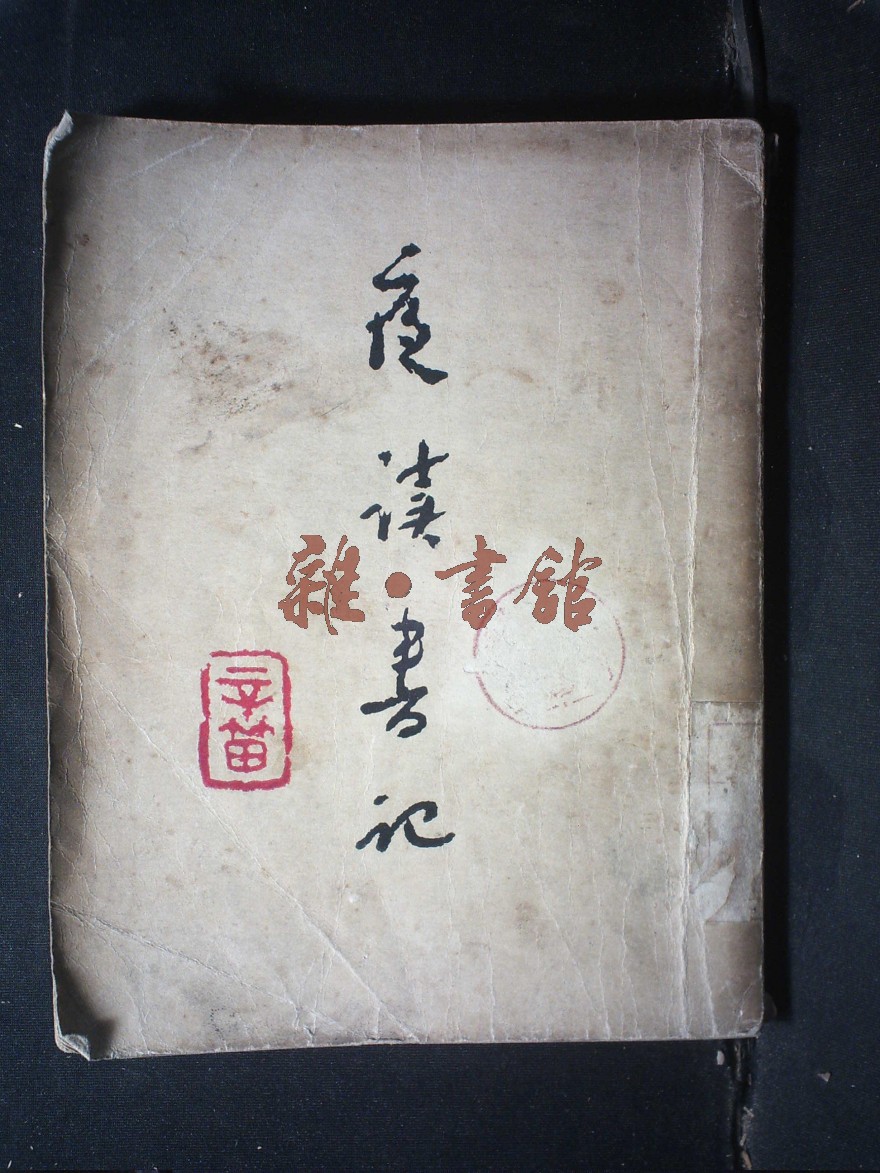 夜读书记
辛笛
雜·書館